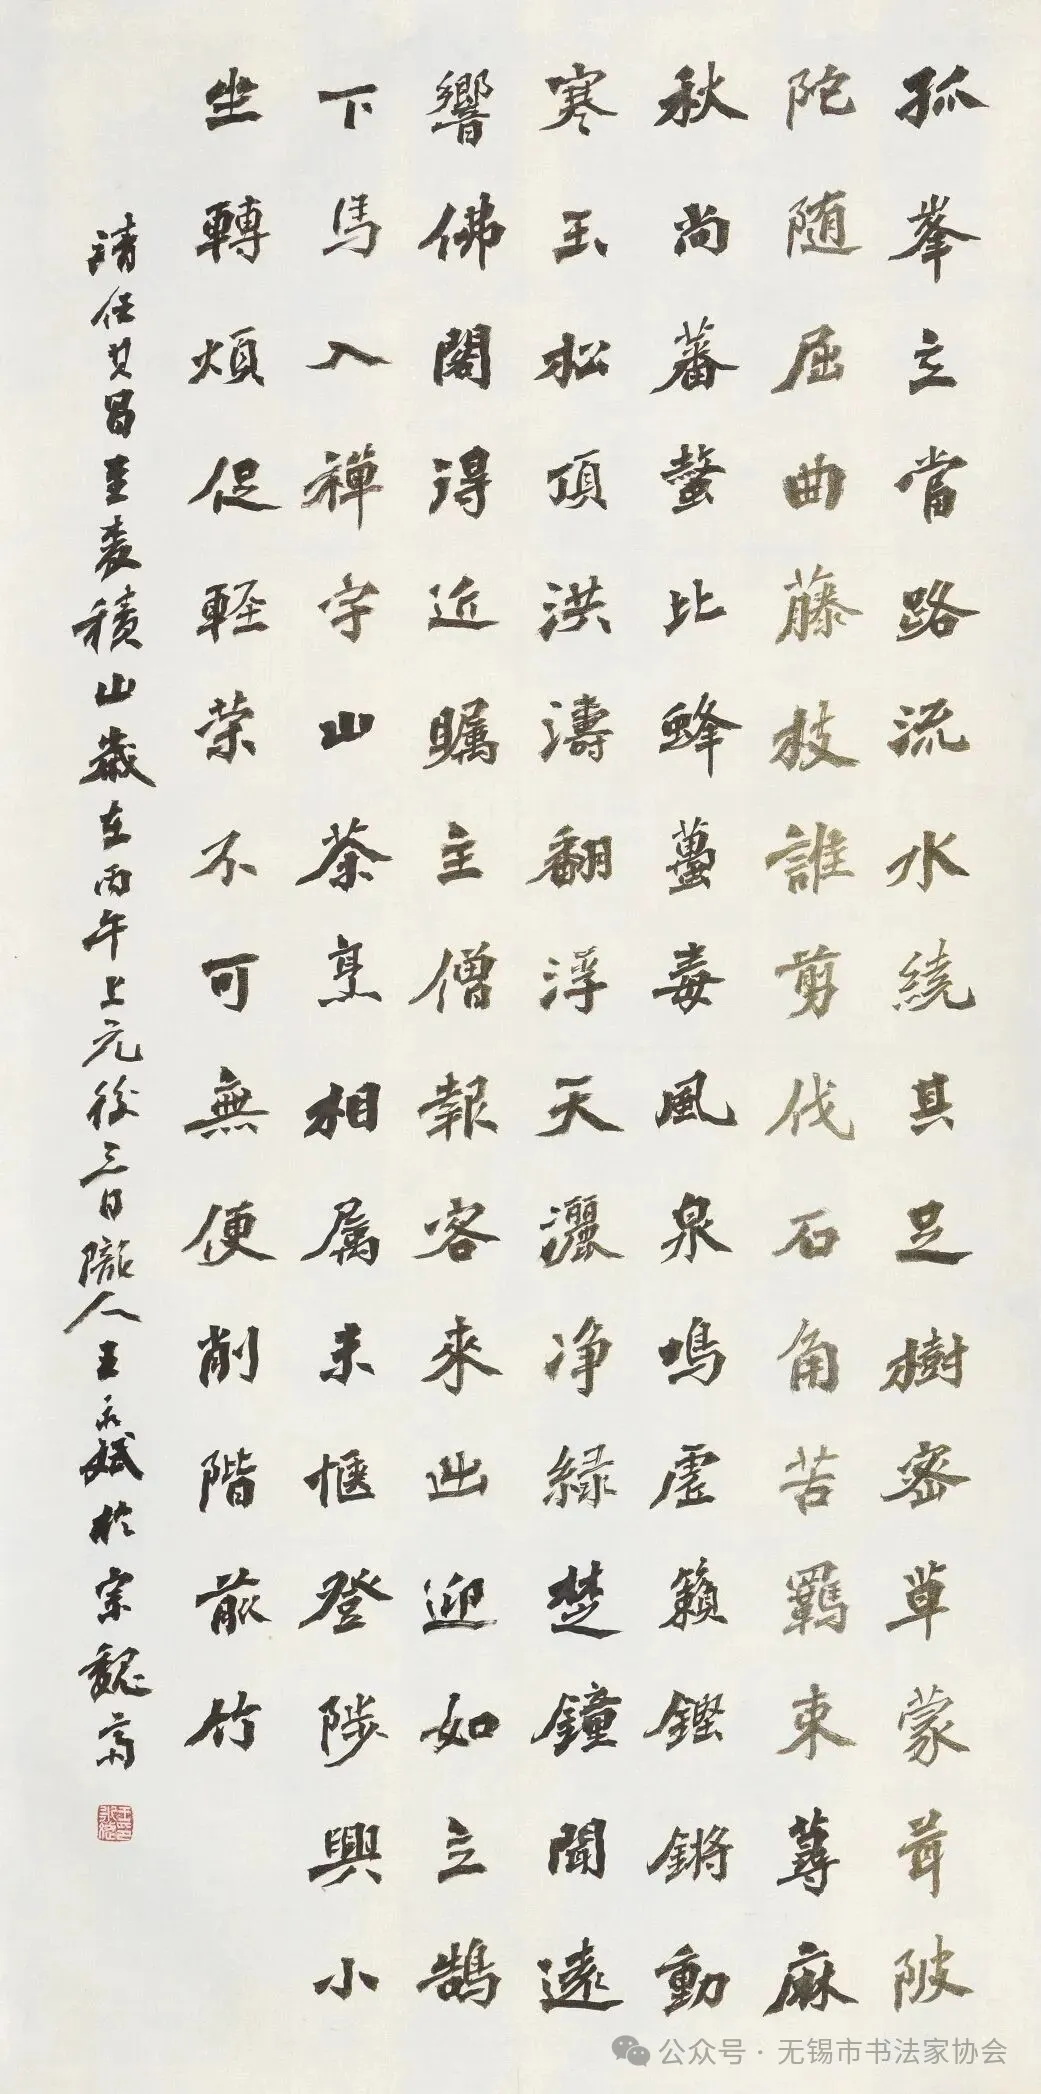 孤峯立當路流水繞其足樹密草蒙茸陂
陀随屈曲藤枝誰剪伐石角苦羈束蕁麻
秋尚蕃螫比蜂蠆毒風泉鳴虛籟鏗鏘動
寒玉松頂洪濤翻浮天灑净緑楚鐘聞遠
響佛閣得近矚主僧報客來出迎如立鵠
下馬入禪宇山茶烹相属未愜登陟興小
坐轉煩促軽荣不可無便削階前竹
清任其昌至麦積山歲在丙午上元後三日隴人王永斌於宗魏齋
公众号·无锡市书法家协会